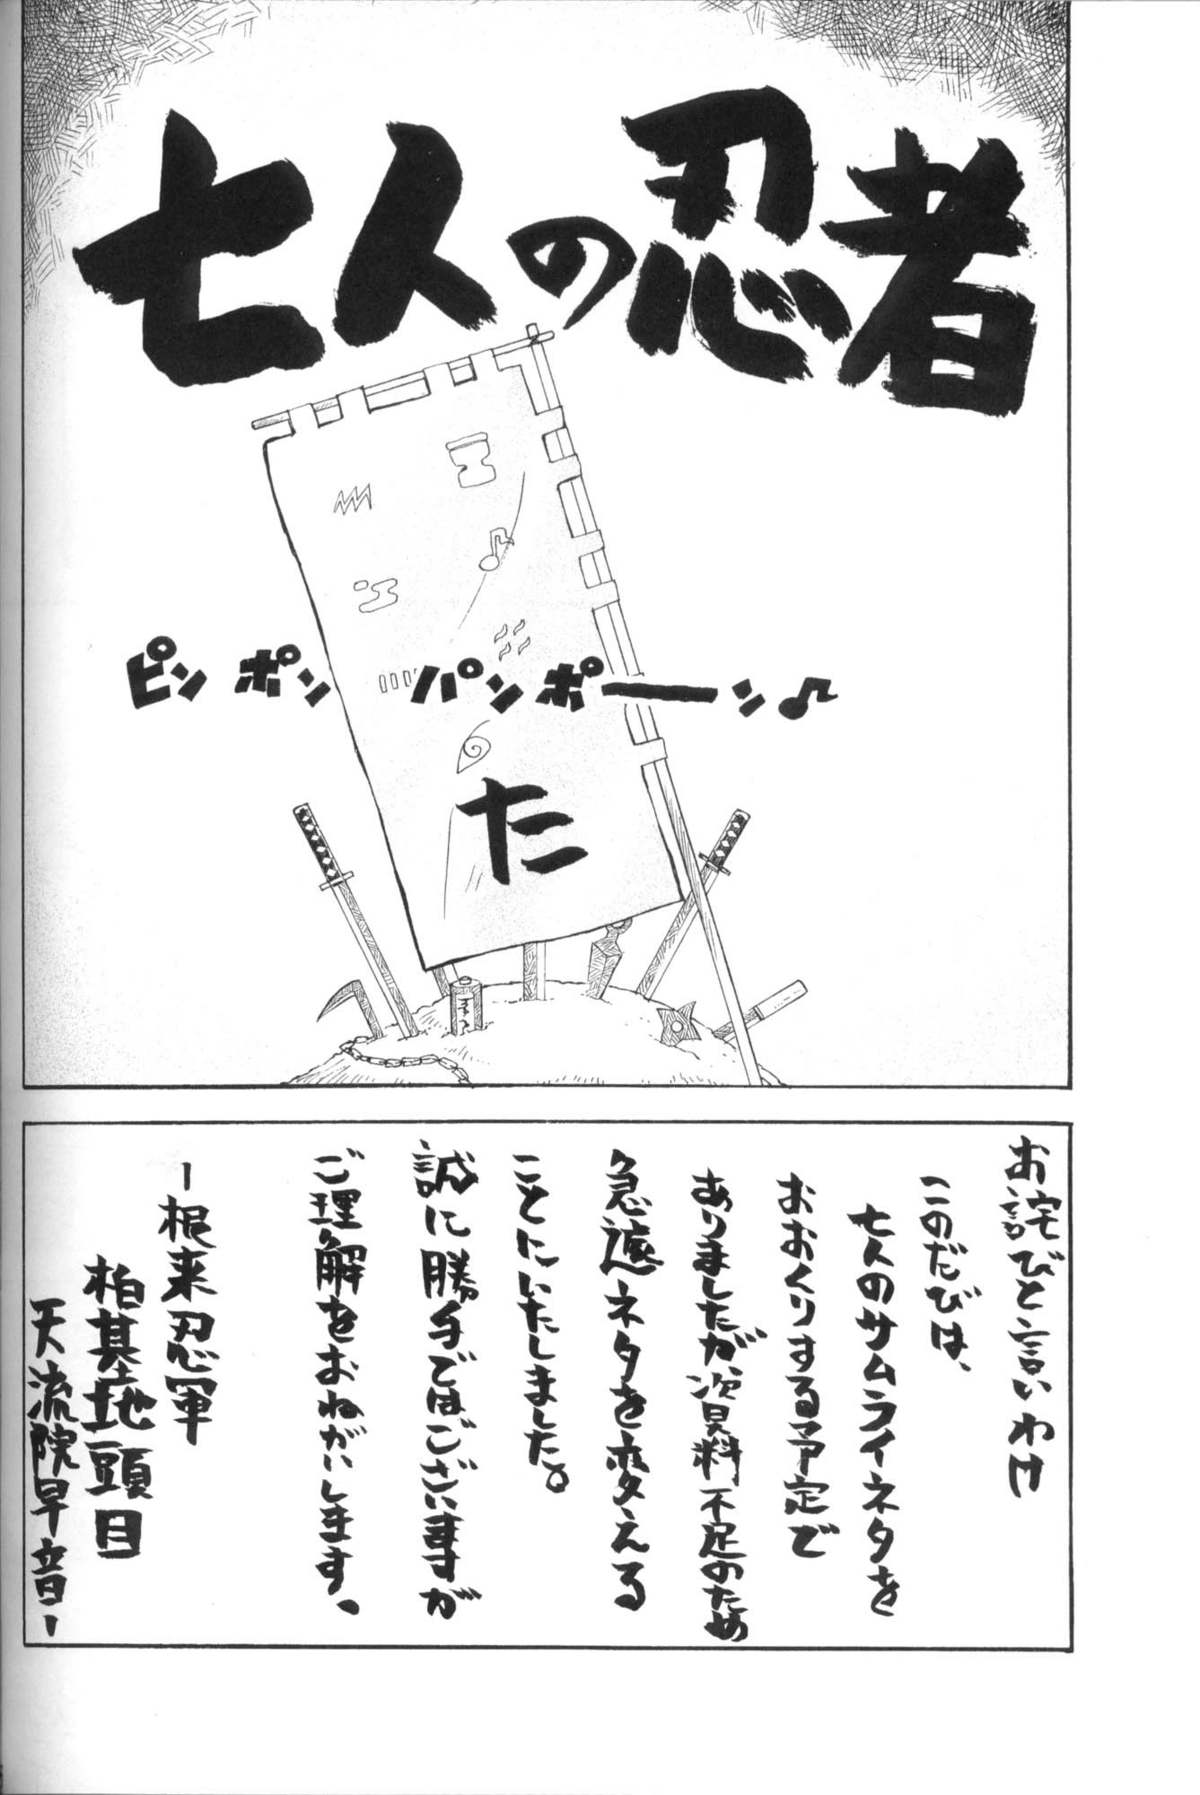 七人の忍者
ピンポンパンポーン♪
た
お詫びと言いわけ
このたびは、
七人のサムライネタを
おおくりする予定で
ありましたが、資料不足のため
急遽ネタを変える
ことにいたしました。
誠に勝手ではございますが
ご理解をおねがいします。
ー根来忍軍
柏基地頭目
天流院早音ー